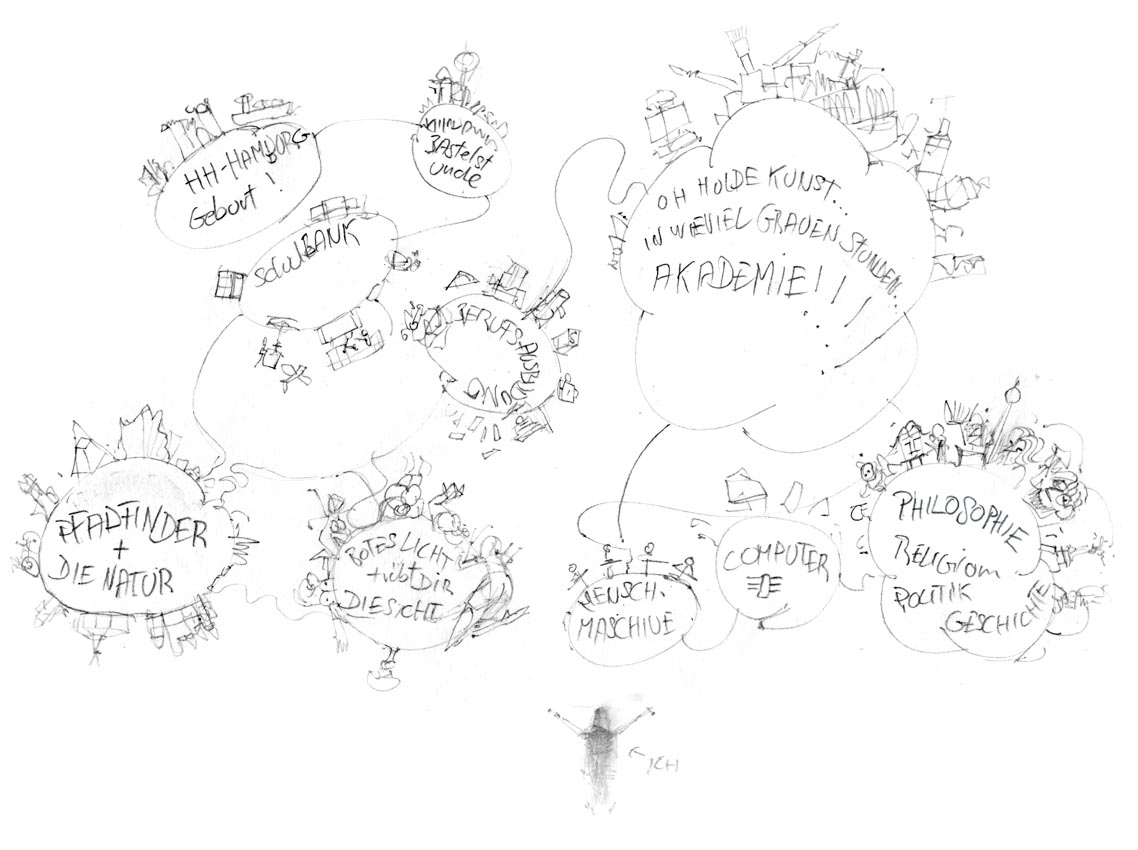 HH-HAMBORG
Gebort!
BAstelst
unde
SchulBANK
BERUFSAUSBILD
UNG
OH HOLDE KUNST...
IN WIEVIEL GRAUEN STUNDEN...
AKADEMIE!!!
PFADFINDER
+
DIE NATUR
ROTES LICHT
+übt DIR
DIE SICHT
MENSCH-
MASCHINE
COMPUTER
PHILOSOPHIE
RELIGIOM
POLITIK
GESCHICHTE
ICH